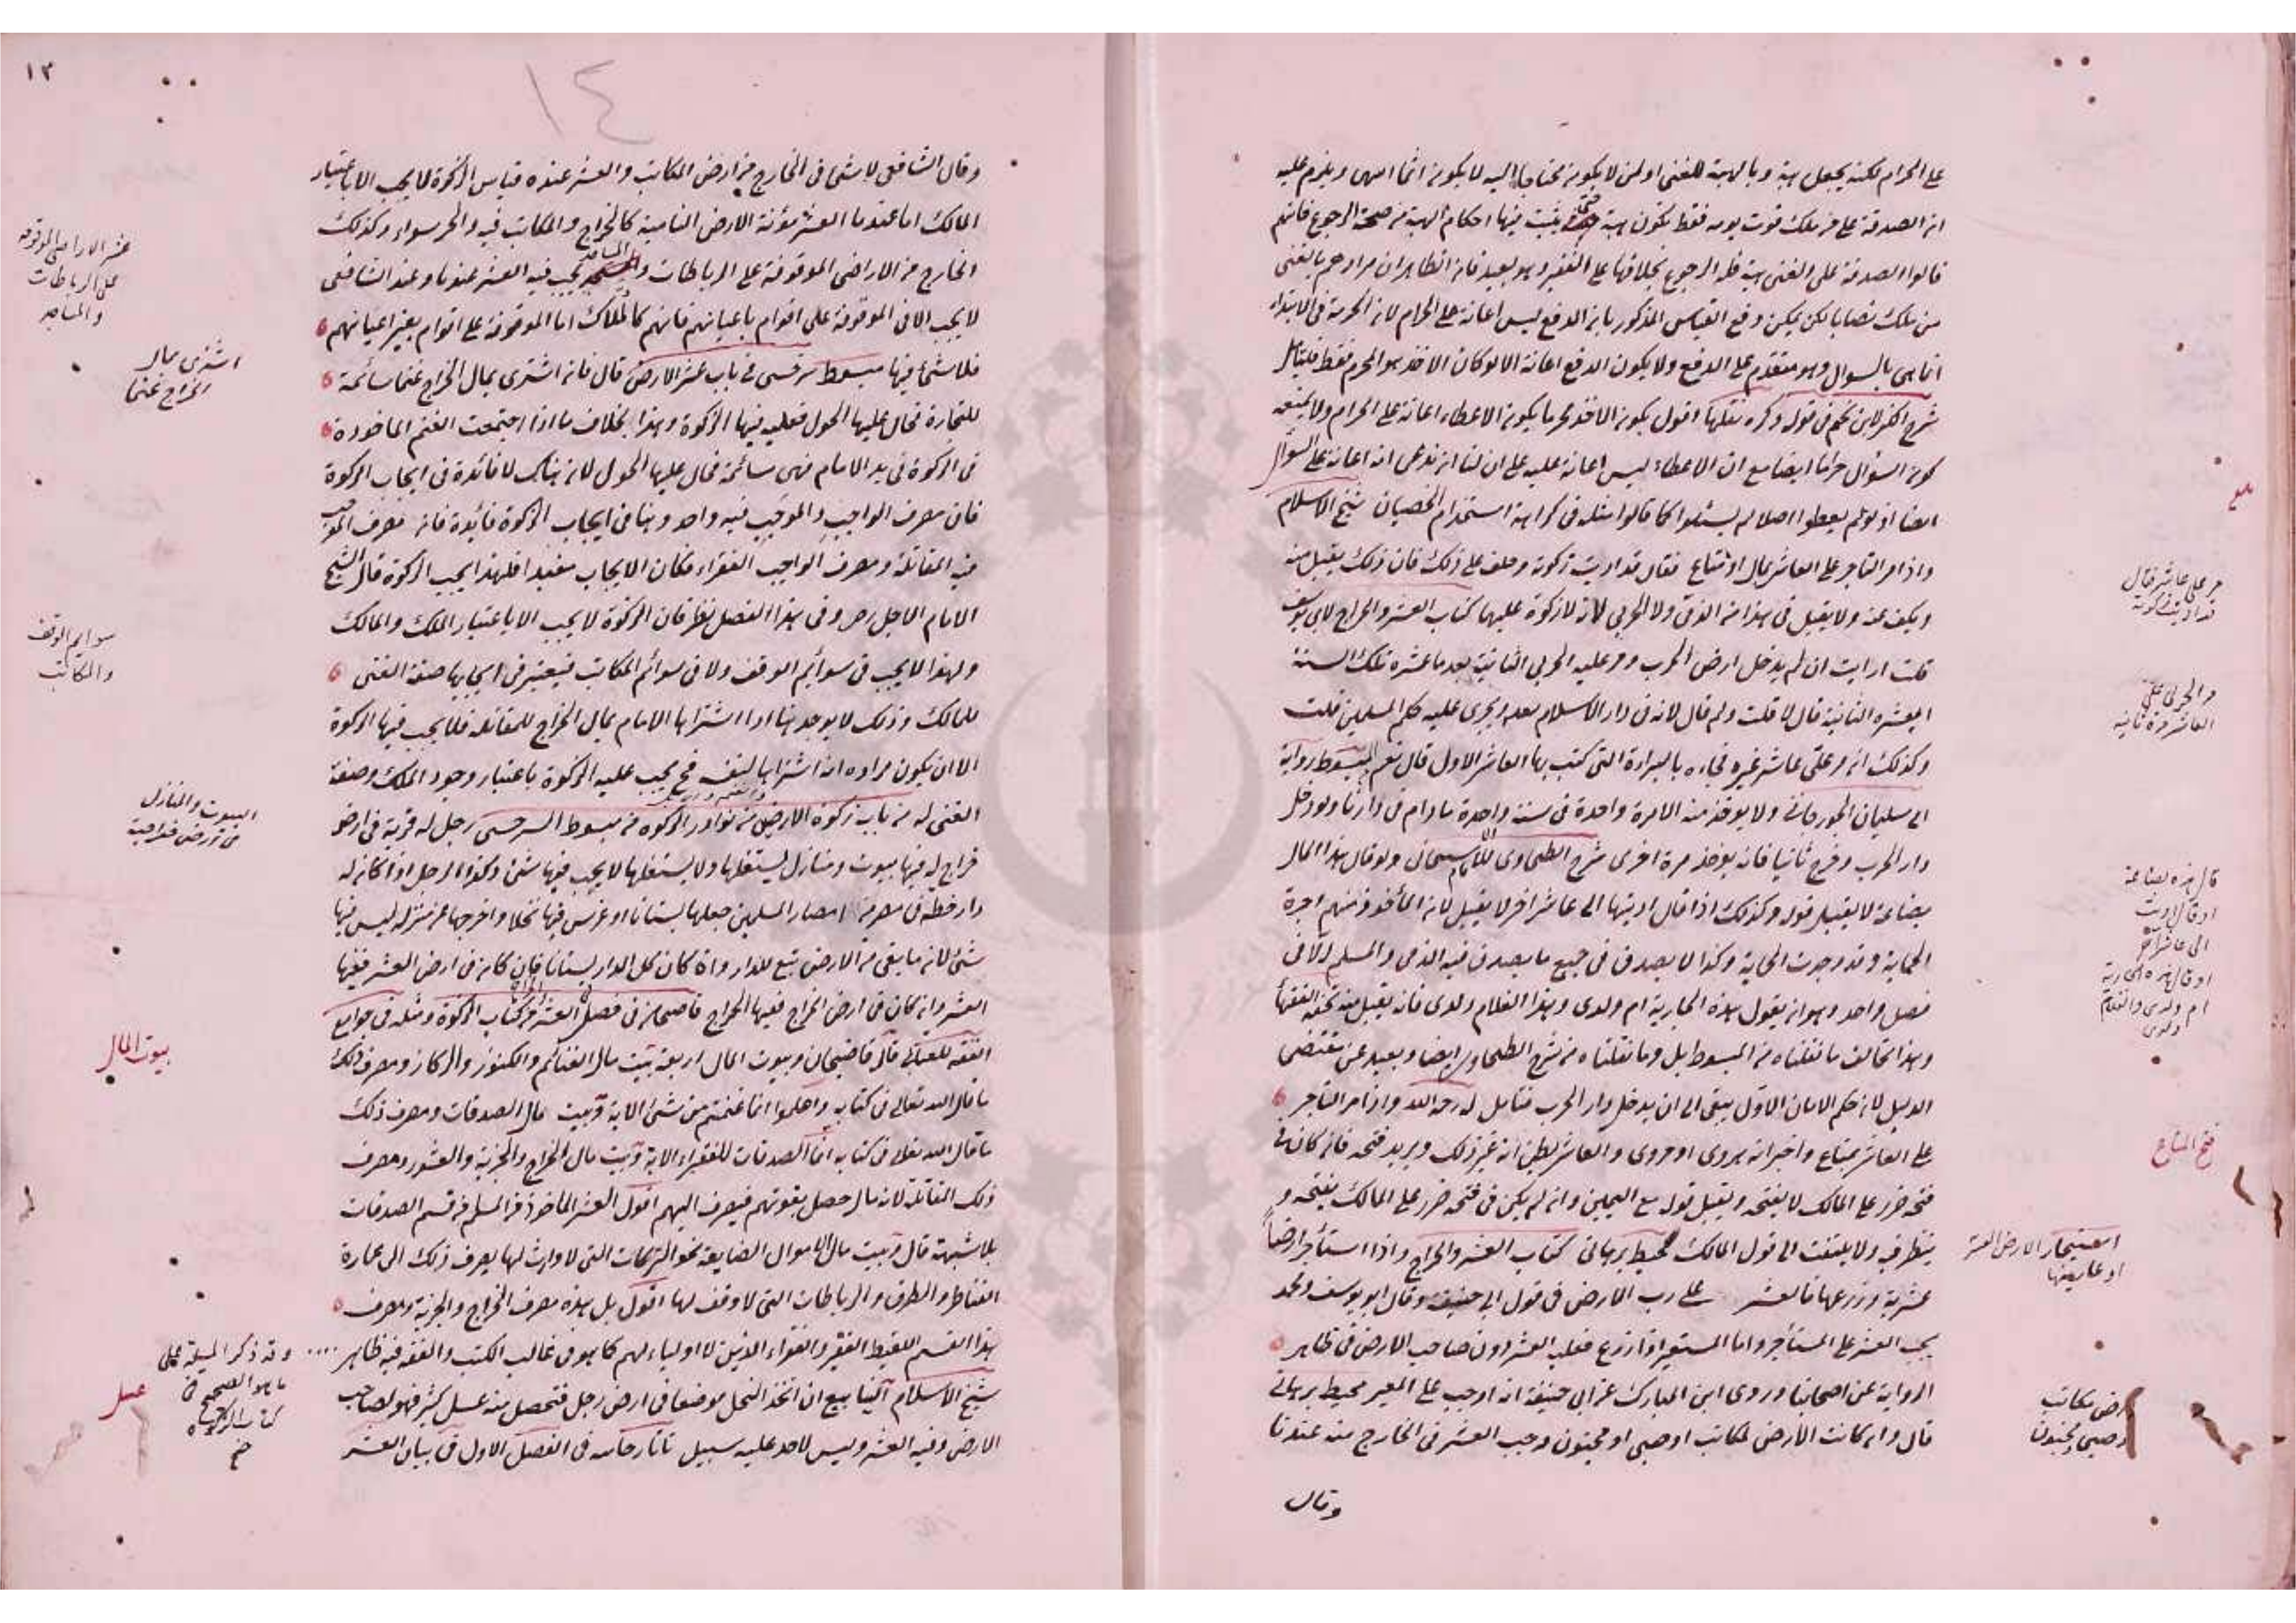 على الحرام لكنه يجعل هبة وبالهبة للغني او لمن لا يكون محتاجا اليه لا يكون اثما انتهى ويلزم عليه
ان الصدقة على من ملك قوت يومه فقط تكون هبة حتى يثبت فيها احكام الهبة من صحة الرجوع فانهم
قالوا الصدقة على الغني هبة فله الرجوع بخلافها على الفقير وهو بعيد فان الظاهر ان مرادهم بالغني
من ملك نصابا لكن يمكن دفع القياس المذكور بان الدفع ليس اعانة على الحرام لان الحرمة في الابتداء
انما هي بالسوال وهو متقدم على الدفع ولا يكون الدفع اعانة الا لو كان الاخذ هو المحرم فقط فليتامل
شرح الكنز لابن نجيم في قوله وكره نقلها اقول بكون الاخذ محرما يكون الاعطاء اعانة على الحرام ولا يمنعه
كون السؤال حراما ايضا مع ان الاعطاء ليس اعانة عليه على ان لنا ان ندعي انه اعانة على السؤال
ايضا اذ لو لم يعطوا اصلا لم يسئلوا كما قالوا مثله في كراهة استخدام الخصيان شيخ الاسلام
واذا مر التاجر على العاشر بمال او متاع فقال قد اديت زكوته وحلف على ذلك فان ذلك يقبل منه
ويكف عنه ولا يقبل في هذا من الذمي ولا الحربي لانه لا زكوة عليهما كتاب العشر والخراج لابي يوسف
قلت ارايت ان لم يدخل ارض الحرب ومر عليه الحربي الثانية بعد ما عشره تلك السنة
ايعشره الثانية قال لا قلت ولم قال لانه في دار الاسلام بعد ويجري عليه حكم المسلمين قلت
وكذلك ان مر على عاشر غيره فجاءه بالبراءة التي كتب بها العاشر الاول قال نعم المبسوط رواية
ابي سليمان الجورجاني ولا يوخذ منه الا مرة واحدة في سنة واحدة ما دام في دارنا ولو دخل
دار الحرب وخرج ثانيا فانه يوخذ مرة اخرى شرح الطحاوي للامام الاسبيجابي ولو قال هذا المال
بضاعة لا يقبل قوله وكذلك اذا قال اديتها الى عاشر اخر لا يقبل لان المأخوذ منهم اجرة
الحماية وقد وجدت الحماية وكذا لا يصدق في جميع ما يصدق فيه الذمي والمسلم الا في
فصل واحد وهو ان يقول هذه الجارية ام ولدي وهذا الغلام ولدي فانه يقبل منه تحفة الفقهأ
وهذا يخالف ما نقلناه من المبسوط بل وما نقلناه من شرح الطحاوي ايضا وبعيد عن مقتضى
الدليل لان حكم الامان الاول يبقى الى ان يدخل دار الحرب فتامل له رحمه الله واذا مر التاجر
على العاشر بمتاع واخبر انه هروي او مروي والعاشر يظن انه غير ذلك ويريد فتحه فان كان في
فتحه ضرر على المالك لا يفتحه ويقبل قوله مع اليمين وان لم يكن في فتحه ضرر على المالك يفتحه و
ينظر فيه ولا يلتفت الى قول المالك محيط برهاني كتاب العشر والخراج واذا استأجر ارضاً
عشرية وزرعها فالعشر على رب الارض في قول ابي حنيفة وقال ابو يوسف ومحمد
يجب العشر على المستأجر واما المستعير اذا زرع فعليه العشر دون صاحب الارض في ظاهر
الرواية عن اصحابنا وروى ابن المبارك عن ابي حنيفة انه اوجب على المعير محيط برهاني
قال وان كانت الارض لمكاتب او صبي او مجنون وجب العشر في الخارج منه عندنا
وقال
مر على عاشر فقال
قد اديت زكوته
والحربي على
العاشر مرة ثانية
قال هذه بضاعة
او قال اديت
الى عاشر آخر
او قال هذه الجارية
ام ولدي والغلام
ولدي
فتح المتاع
استيجار الارض العشر
ارض مكاتب
وصبي ومجنون
١٣
١٤
وقال الشافعي لا شئ في الخارج من ارض المكاتب والعشر عنده قياس الزكوة لا يجب الا باعتبار
المالك اما عندنا العشر مؤنة الارض النامية كالخراج والمكاتب فيه والحر سواء وكذلك
الخارج من الاراضي الموقوفة على الرباطات والمساجد يجب فيه العشر عندنا وعند الشافعي
لا يجب الا في الموقوفة على اقوام باعيانهم فانهم كالملاك اما الموقوفة على اقوام بغير اعيانهم
فلا شئ فيها مبسوط سرخسي في باب عشر الارض قال فان اشترى بمال الخراج غنما سائمة
للتجارة فحال عليها الحول فعليه فيها الزكوة وهذا بخلاف ما اذا اجتمعت الغنم الماخوذة
في الزكوة في يد الامام فهي سائمة فحال عليها الحول لان هناك لا فائدة في ايجاب الزكوة
فان مصرف الواجب والموجب فيه واحد وهنا في ايجاب الزكوة فائدة فان مصرف الموجب
فيه المقاتلة ومصرف الواجب الفقراء فكان الايجاب مفيدا فلهذا يجب الزكوة قال الشيخ
الامام الاجل رحمه وفي هذا الفصل نظر فان الزكوة لا يجب الا باعتبار الملك والمالك
ولهذا لا يجب في سوائم الوقف ولا في سوائم المكاتب فيعتبر في ايجابها صفة الغنى
للمالك وذلك لا يوجد هنا اذا اشتراها الامام بمال الخراج للمقاتلة فلا يجب فيها الزكوة
الا ان يكون مراده انه اشتراها لنفسه فح يجب عليه الزكوة باعتبار وجود الملك وصفة
الغنى له من باب زكوة الارضين من نوادر الزكوة من مبسوط السرخسي رجل له قرية في ارض
خراج له فيها بيوت ومنازل يستغلها ولا يستغلها لا يجب فيها شئ وكذا الرجل اذا كان له
دار خطة في مصر من امصار المسلمين جعلها بستانا او غرس فيها نخلا واخرجها عن منزله ليس فيها
شئ لان ما بقي من الارض تبع للدار وان كان كل الدار بستانا فان كان في ارض العشر ففيها
العشر وان كان في ارض الخراج ففيها الخراج قاضيخان في فصل العشر والخراج من كتاب الزكوة ومثله في جوامع
الفقه للعتابي قال قاضيخان وبيوت المال اربعة بيت مال الغنائم والكنوز والركاز ومصرف ذلك
ما قال الله تعالى في كتابه واعلموا انما غنمتم من شئ الاية وبيت مال الصدقات ومصرف ذلك
ما قال الله تعالى في كتابه انما الصدقات للفقراء الاية وبيت مال الخراج والجزية والعشور ومصرف
ذلك المقاتلة لانه مال حصل بقوتهم فيصرف اليهم اقول العشر الماخوذ من المسلم من قسم الصدقات
بلا شبهة قال وبيت مال الاموال الضايعة نحو التركات التي لا وارث لها يصرف ذلك الى عمارة
القناطر والطرق والرباطات التي لا وقف لها اقول بل هذه مصرف الخراج والجزية ومصرف
هذا القسم اللقيط الفقير والفقراء الذين لا اولياء لهم كما هو في غالب الكتب والفقه فيه ظاهر
شيخ الاسلام اليناابيع ان اتخذ النحل موضعا في ارض رجل فتحصل منه عسل كثير فهو لصاحب
الارض وفيه العشر وليس لاحد عليه سبيل تاتارخانيه في الفصل الاول في بيان العشر
عشر الاراضي الموقوفة
على الرباطات
والمساجد
اشترى بمال
الخراج غنما
سوايم الوقف
والمكاتب
البيوت والمنازل
في ارض خراجية
بيوت المال
وقد ذكر المسئلة على
ما هو الصحيح في
كتاب الزكوة
عسل